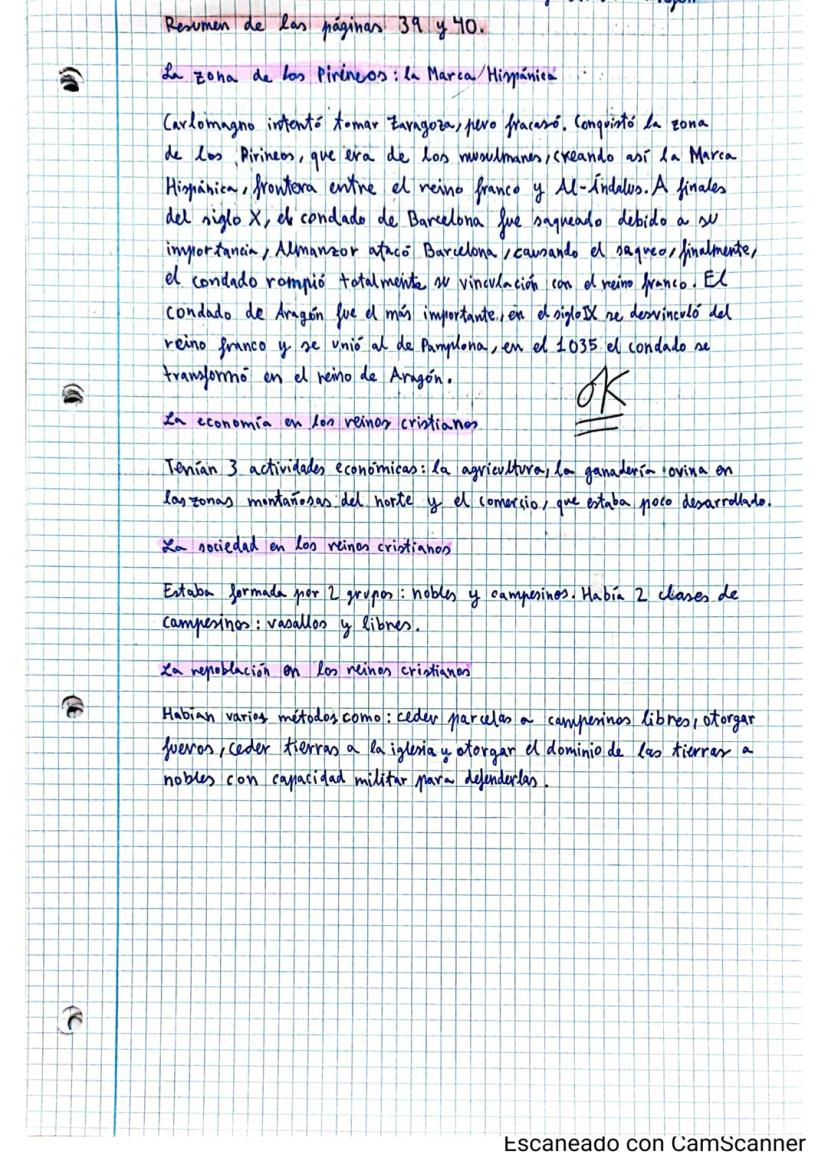 Resumen de las páginas 39 y 40.
La zona de los Pirineos: la Marca/Hispánica
Carlomagno intentó tomar Zaragoza, pero fracasó. Conquistó la zona
de los Pirineos, que era de los musulmanes, creando así la Marca
Hispánica, frontera entre el reino franco y Al-Ándalus. A finales
del siglo X, el condado de Barcelona fue saqueado debido a su
importancia, Almanzor atacó Barcelona, causando el saqueo, finalmente,
el condado rompió totalmente su vinculación con el reino franco. El
condado de Aragón fue el más importante, en el siglo IX se desvinculó del
reino franco y se unió al de Pamplona, en el 1035 el condado se
transformó en el reino de Aragón.
OK
La economía en los reinos cristianos
Tenían 3 actividades económicas: la agricultura, la ganadería ovina en
las zonas montañosas del norte y el comercio, que estaba poco desarrollado.
La sociedad en los reinos cristianos
Estaba formada por 2 grupos: nobles y campesinos. Había 2 clases de
campesinos: vasallos y libres.
La repoblación en los reinos cristianos
Habían varios métodos como: ceder parcelas a campesinos libres, otorgar
fueros, ceder tierras a la iglesia y otorgar el dominio de las tierras a
nobles con capacidad militar para defenderlas.
Escaneado con CamScanner